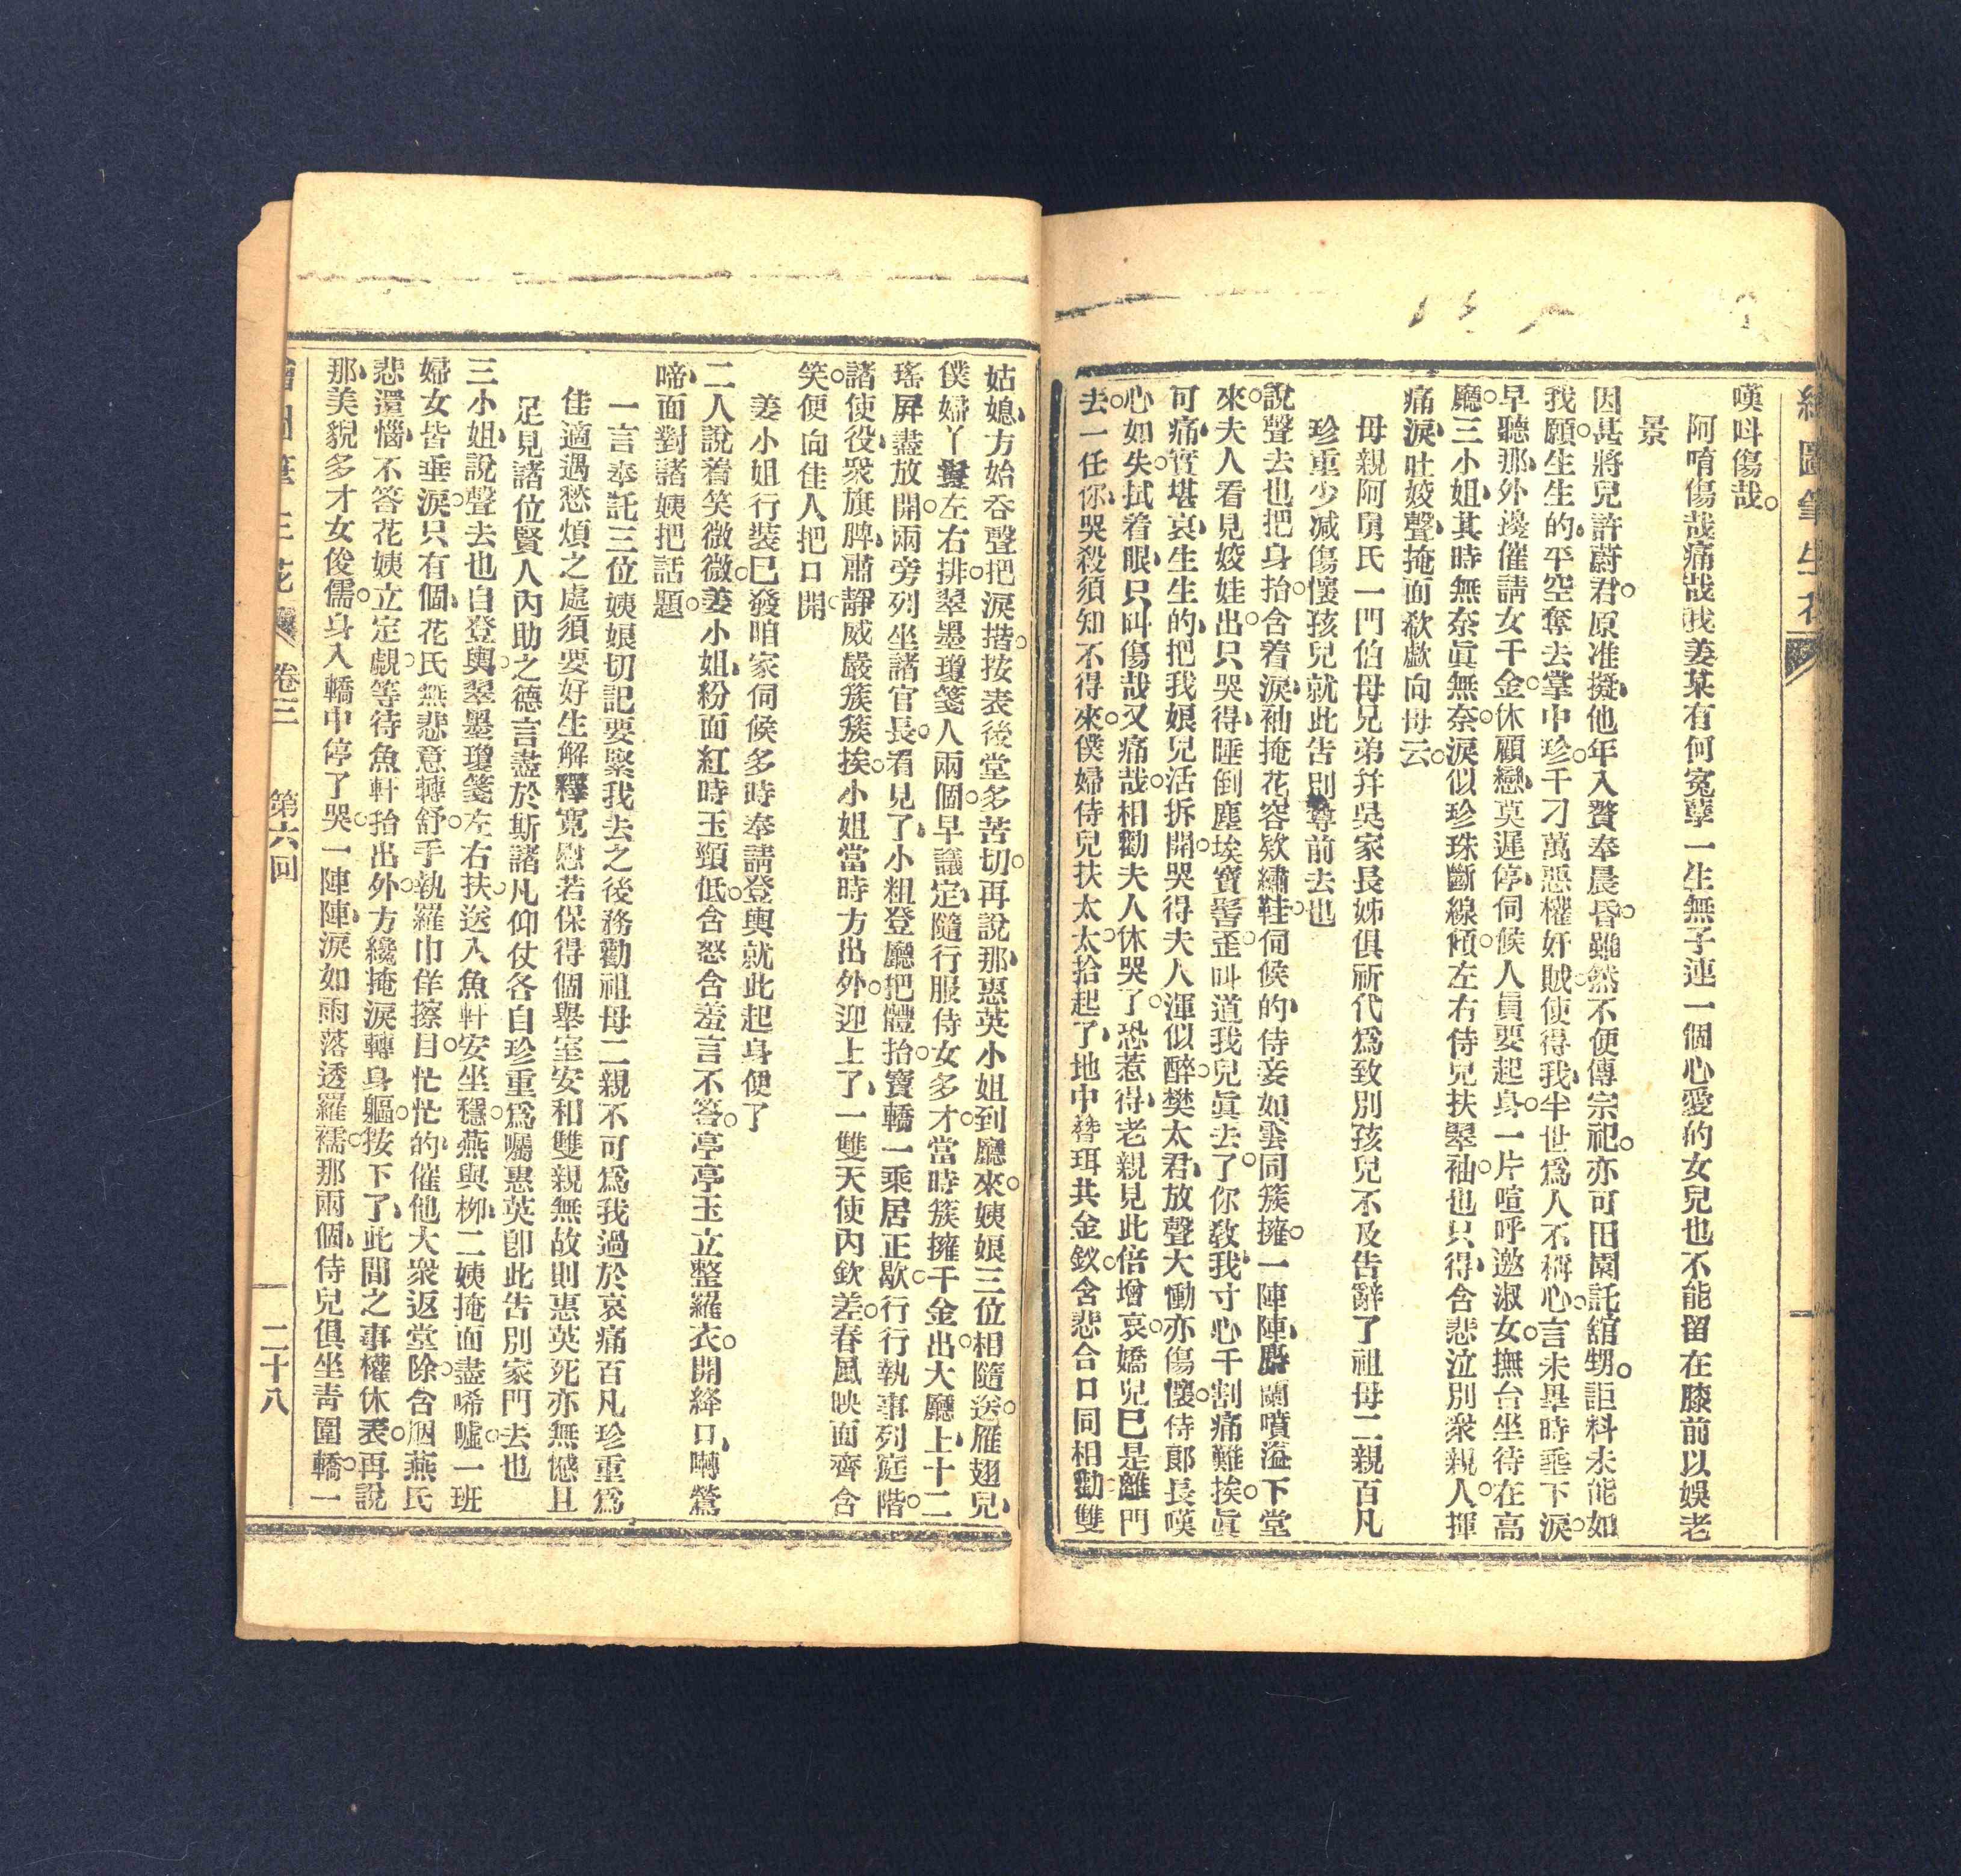 繪圖筆生花
嘆呌傷哉。
阿唷傷哉痛哉我姜某有何寃孽一生無子連一個心愛的女兒也不能留在膝前以娛老
景
因甚將兒許蔚君。原准擬、他年入贅奉晨昏。雖然不便傳宗祀。亦可田園託舘甥。詎料未能如
我願。生生的、平空奪去掌中珍。千刁萬惡權奸賊。使得我、半世爲人不稱心。言未畢時垂下淚。
早聽那、外邊催請女千金。休顧戀、莫遲停、伺候人員要起身。一片喧呼邀淑女。撫台坐待在高
廳。三小姐、其時無奈眞無奈。淚似珍珠斷線傾。左右侍兒扶翠袖。也只得、含悲泣別衆親人。揮
痛淚、吐姣聲、掩面欷歔向母云。
母親阿舅氏一門伯母兄弟并吳家長姊俱祈代爲致別孩兒不及告辭了祖母二親百凡
珍重少减傷懷孩兒就此告別尊前去也
說聲去也把身抬。含着淚、袖掩花容欵繡鞋。伺候的、侍妾如雲同簇擁。一陣陣、麝蘭噴溢下堂
來。夫人看見姣娃出。只哭得、睡倒塵埃寶髻歪。叫道我兒眞去了。你教我、寸心千割痛難挨。眞
可痛、實堪哀、生生的、把我娘兒活拆開。哭得夫人渾似醉。樊太君、放聲大慟亦傷懷。侍郎長嘆
心如失。拭着眼、只叫傷哉又痛哉。相勸夫人休哭了。恐惹得、老親見此倍增哀。嬌兒巳是離門
去。一任你、哭殺須知不得來。僕婦侍兒扶太太。拾起了、地中簪珥共金釵。含悲合口同相勸雙
姑媳、方始吞聲把淚揩。按表後堂多苦切。再說那、惠英小姐到廳來。姨娘三位相隨送。雁翅兒、
僕婦丫鬟左右排。翠墨瓊箋人兩個。早議定、隨行服侍女多才。當時簇擁千金出。大廳上、十二
瑤屏盡放開。兩旁列坐諸官長。看見了、小粗登廳把體抬。寶轎一乘居正歇。行行執事列庭階。
諸使役、衆旗牌、肅靜威嚴簇簇挨。小姐當時方出外。迎上了、一雙天使內欽差。春風映面齊含
笑。便向佳人把口開。
姜小姐行裝巳發咱家伺候多時奉請登輿就此起身便了
二人說着笑微微。姜小姐、粉面紅時玉頸低。含怒含羞言不答。亭亭玉立整羅衣。開絳口、囀鶯
啼、面對諸姨把話題。
一言奉託三位姨娘切記要緊我去之後務勸祖母二親不可爲我過於哀痛百凡珍重爲
佳適遇愁煩之處須要好生解釋寬慰若保得個舉室安和雙親無故則惠英死亦無憾且
足見諸位賢人內助之德言盡於斯諸凡仰仗各自珍重爲囑惠英卽此告別家門去也
三小姐、說聲去也自登輿。翠墨瓊箋左右扶。送入魚軒安坐穩。燕與柳、二姨掩面盡唏噓。一班
婦女皆垂淚。只有個、花氏無悲意轉舒。手執羅巾佯擦目。忙忙的、催他大衆返堂除。含胭燕氏
悲還惱、不答花姨立定覷。等待魚軒抬出外。方纔掩淚轉身軀。按下了、此間之事權休表。再說
那、美貌多才女俊儒。身入轎中停了哭。一陣陣、淚如雨落透羅襦。那兩個、侍兒俱坐靑圍轎。一
繪圖筆生花 卷三 第六回 二十八